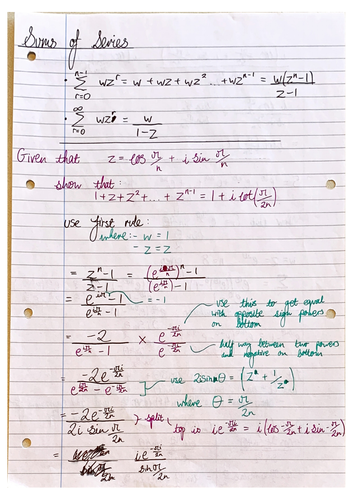 Sums of Series
· Σ_{r=0}^{n-1} wz^r = w + wz + wz² ... + wz^{n-1} = w(z^n-1)/(z-1)
· Σ_{r=0}^{∞} wz^r = w/(1-z)
Given that z = cos π/n + i sin π/n
show that :
1+z+z²+ ... + z^{n-1} = 1 + i cot(π/2n)
use first rule:
where:- w = 1
- z = z
= (z^n-1)/(z-1) = ((e^{iπ/n})^n -1)/((e^{iπ/n})-1)
= (e^{iπ}-1)/(e^{iπ/n}-1) = -1
use this to get equal
with opposite sign powers
on bottom
= -2/(e^{iπ/n}-1) × e^{-πi/2n}/e^{-πi/2n}
half way between two powers
and negative on bottom
= -2e^{-πi/2n}/(e^{πi/2n} - e^{-πi/2n})
use 2sinnθ = (z^n + 1/z^n)
where θ = π/2n
= -2e^{-πi/2n}/(2i sin π/2n)
split
top is ie^{-πi/2n} = i(cos -π/2n + i sin -π/2n)
= ie^{-πi/2n}/(sin π/2n)